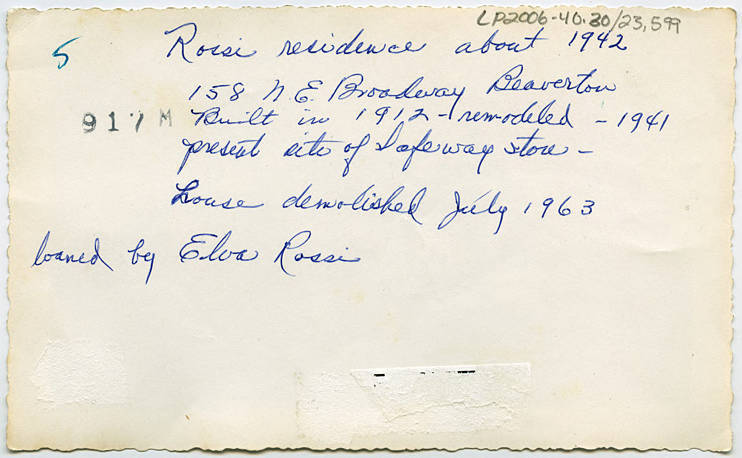 LP2006-40.30/23,599
5
Rossi residence about 1942
158 N.E. Broadway Beaverton
917 M
Built in 1912 - remodeled - 1941
present site of Safeway store -
house demolished July 1963
loaned by Elva Rossi